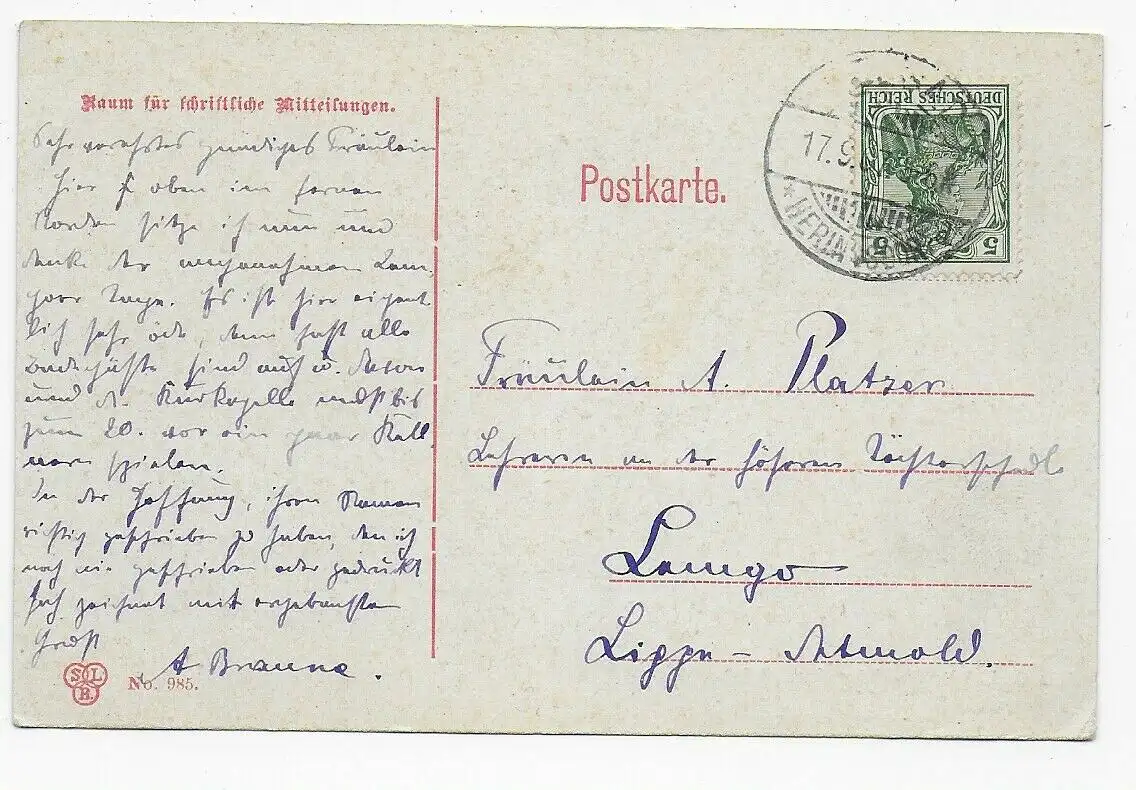 Raum für schriftliche Mitteilungen.
Sehr verehrtes gnädiges Fräulein
Hier oben im fernen
Norden sitze ich nun und
denke der angenehmen Lem
goer Tage. Es ist hier eigent
lich sehr öde, denn fast alle
Badegäste sind auf u. davon
und d. Kurkapelle muß bis
zum 20. vor ein paar Kell
nern spielen.
In der Hoffnung, ihren Namen
richtig geschrieben zu haben, den ich
noch nie geschrieben oder gedruckt
sah zeichnet mit ergebenstem
Gruß
A Braune.
SLB. No. 985.
Postkarte.
DEUTSCHES REICH
5 5
17.9.
* HERINGSDORF
Fräulein A. Platzer
Lehrerin an der höheren Töchterschule
Lemgo
Lippe - Detmold.